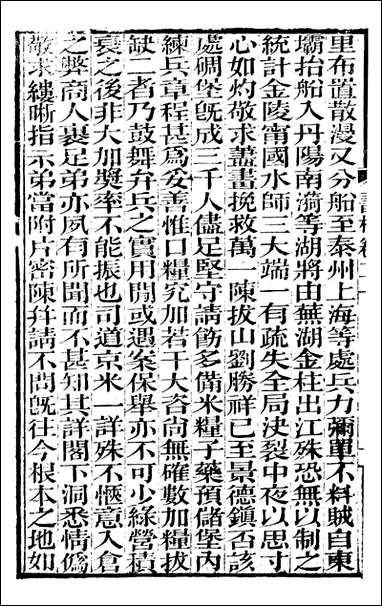 里布置散漫又分船至泰州上海等處兵力彌單不料賊自東
壩抬船入丹陽南漪等湖將由蕪湖金柱出江殊恐無以制之
統計金陵甯國水師三大端一有疏失全局決裂中夜以思寸
心如灼敬求藎畫挽救萬一陳拔山劉勝祥已至景德鎮否該
處碉堡旣成二千人儘足堅守請飭多備米糧子藥預儲堡內
練兵章程甚爲妥善惟口糧究加若干大咨尙無確數加糧拔
缺二者乃鼓舞弁兵之實用閒或遇案保舉亦不可少綠營積
衰之後非大加獎率不能振也司道京米一詳殊不愜意入倉
之弊商人裹足弟亦夙有所聞而不甚知其詳閣下洞悉情僞
敬求縷晰指示弟當附片密陳幷請不問旣往今根本之地如